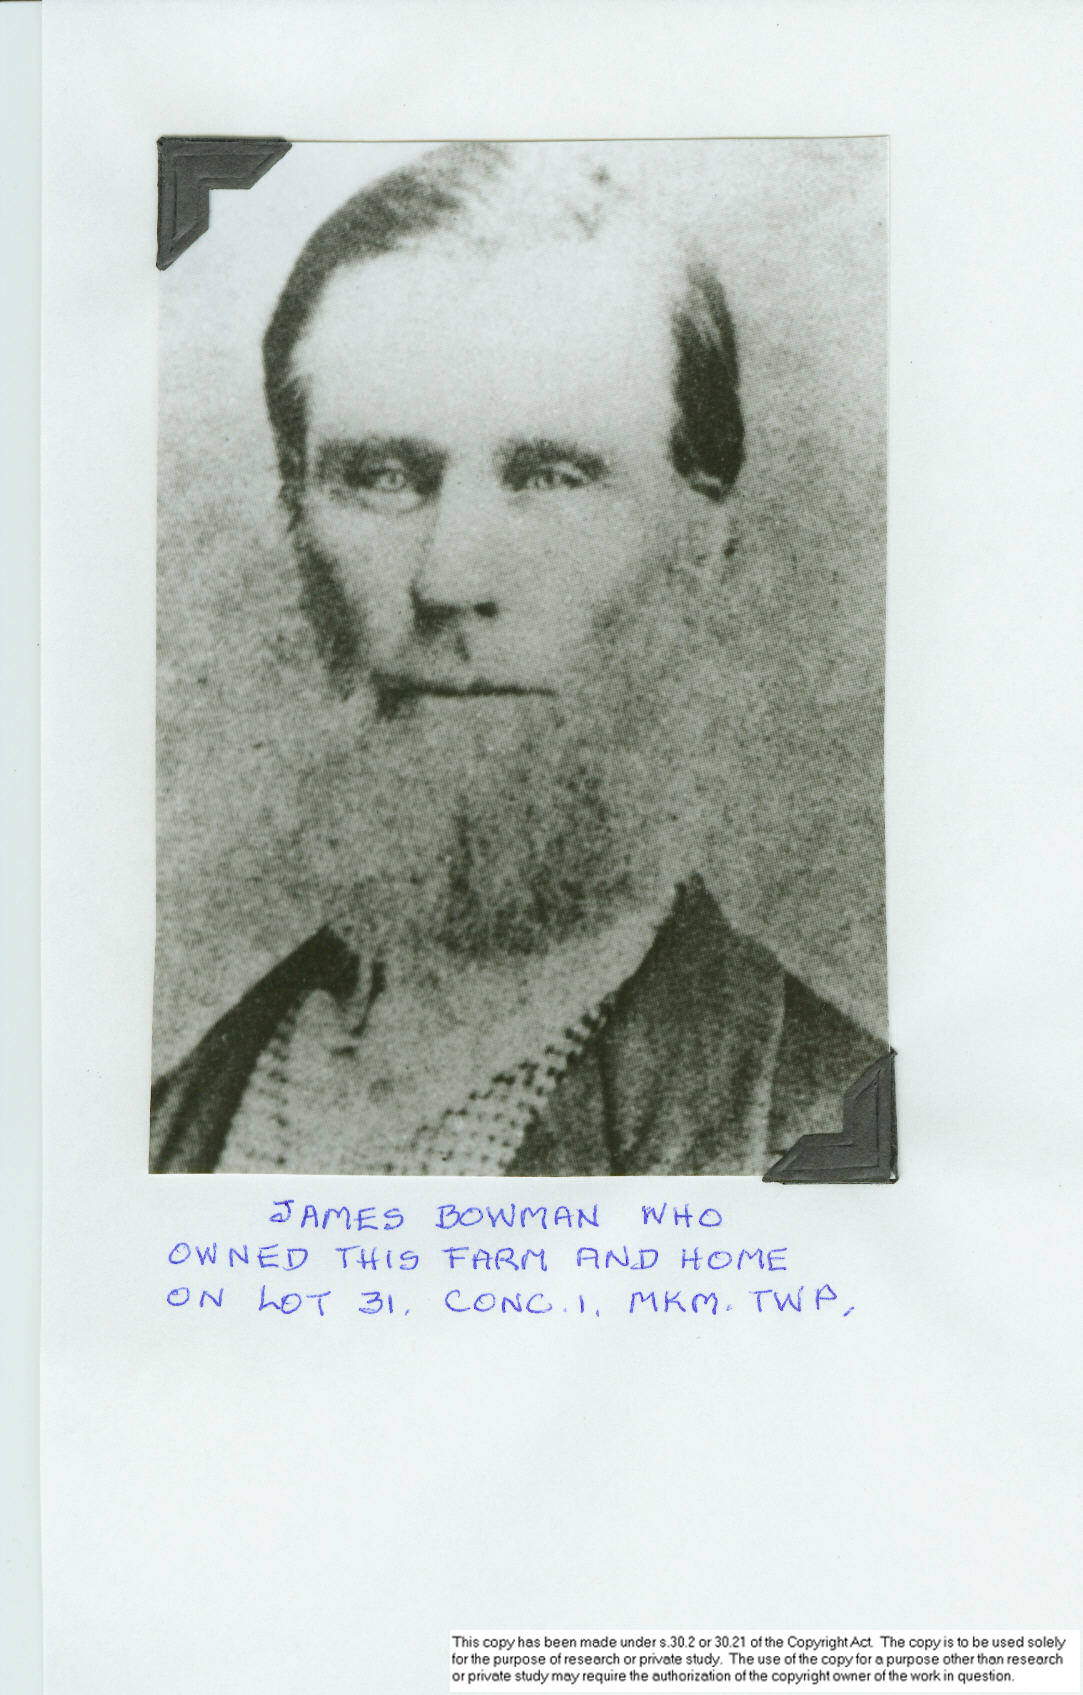 JAMES BOWMAN WHO
OWNED THIS FARM AND HOME
ON LOT 31, CONC. 1, MKM. TWP,
This copy has been made under s.30.2 or 30.21 of the Copyright Act. The copy is to be used solely
for the purpose of research or private study. The use of the copy for a purpose other than research
or private study may require the authorization of the copyright owner of the work in question.